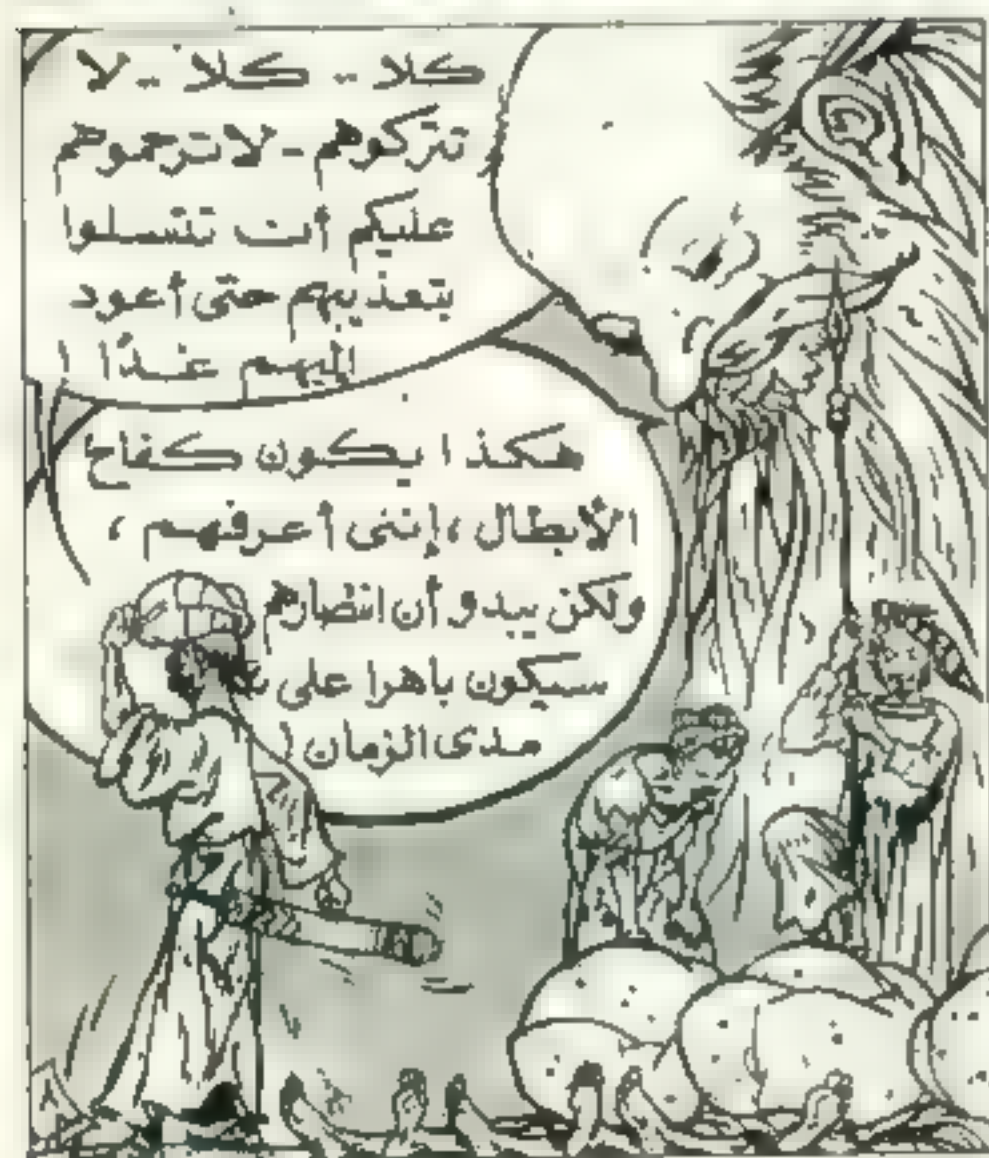 كلا -- كلا - لا
تتركوهم - لا ترحموهم
عليكم أن تتسلوا
بتعذيبهم حتى أعود
إليهم غدًا !
هكذا يكون كفاح
الأبطال ، إننى أعرفهم ،
ولكن يبدو أن انتصارهم
سيكون باهرا على
مدى الزمان !